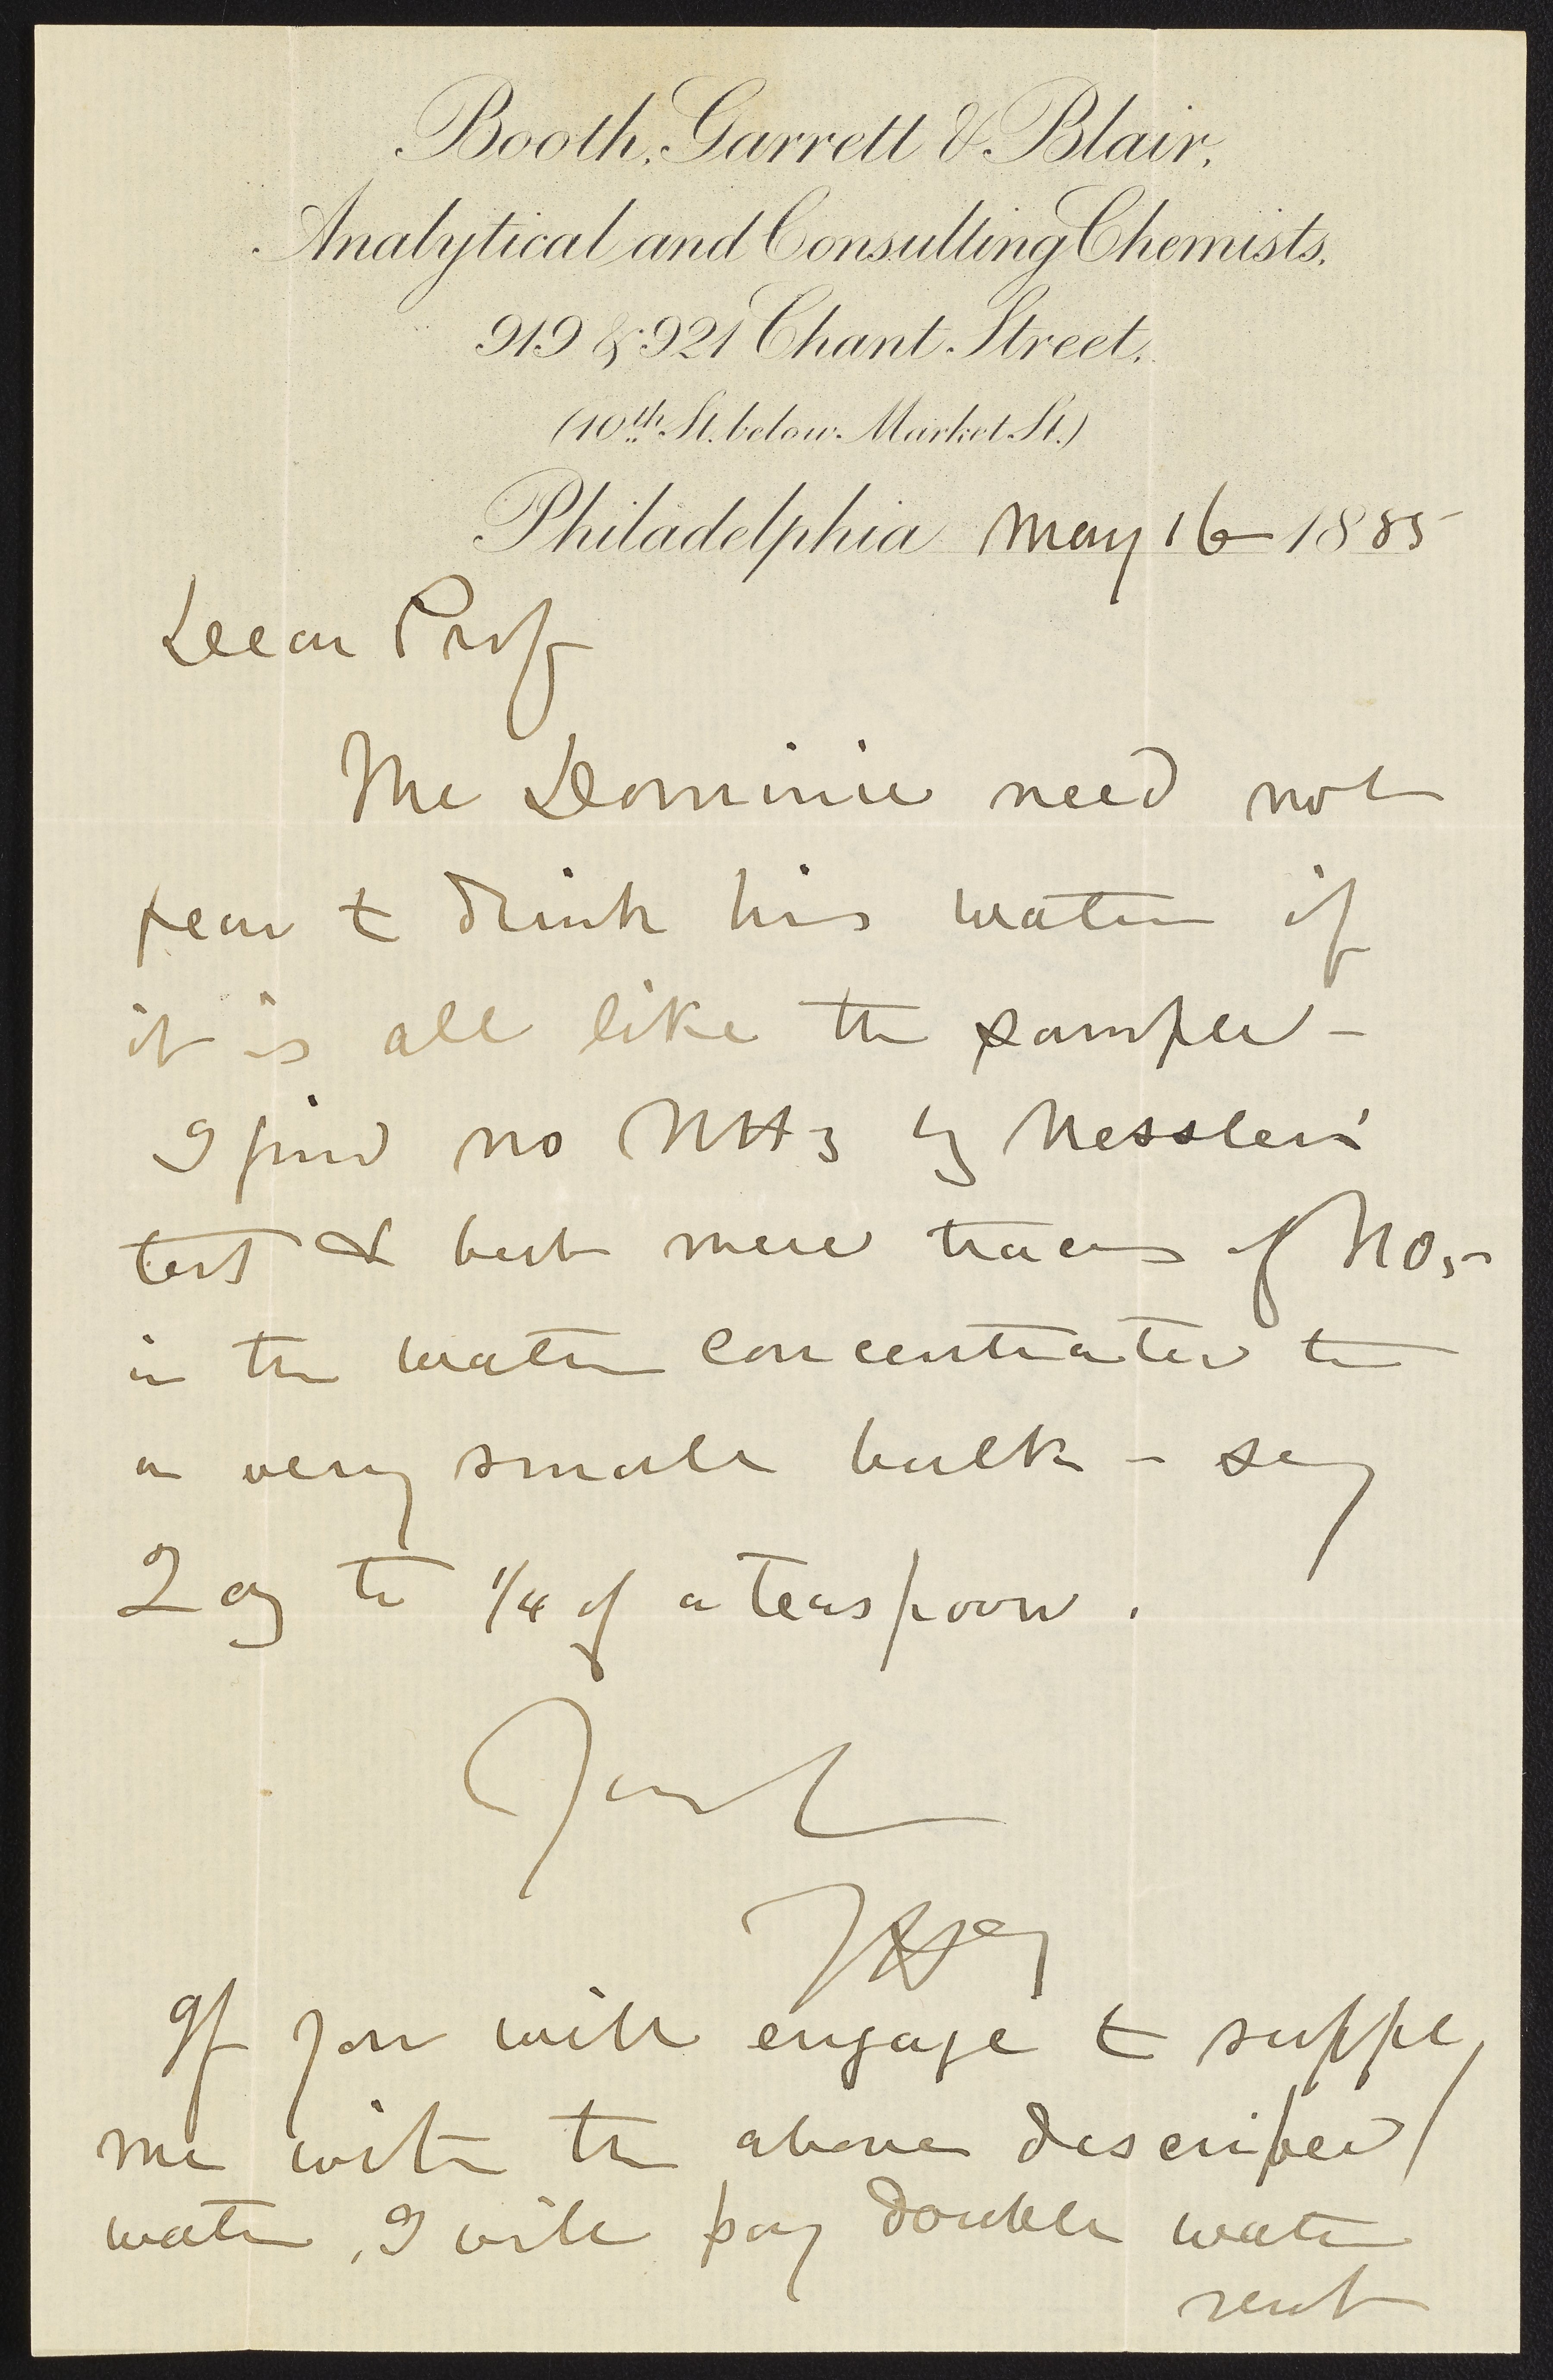 Booth, Garrett & Blair,
Analytical and Consulting Chemists,
919 & 921 Chant Street,
(10th St. below Market St.)
Philadelphia May 16 1885
Dear Prof
The Dominie need not
fear to drink his water if
it is all like the sample -
I find no NH3 by Nessler's
test & but mere traces of NO5
in the water concentrated to
a very small bulk - say
2 oz to 1/4 of a teaspoon.
If you will engage to supply
me with the above described
water, I will pay double water
rent